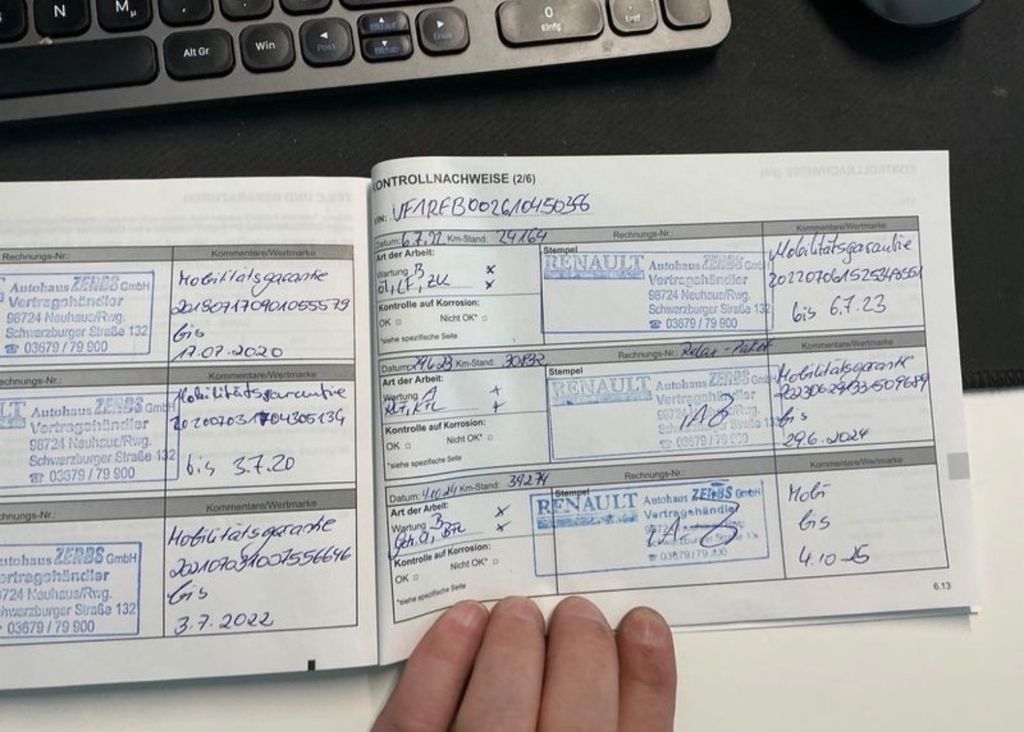 N
M µ
Alt Gr
Win
Post
Ende
0
Einfg
Entf
Rechnungs-Nr.:
Kommentare/Wertmarke
Autohaus ZERBS GmbH
Vertragshändler
98724 Neuhaus/Rwg.
Schwarzburger Straße 132
☎ 03679 / 79 900
Mobilitätsgarantie
bis
17.07.2020
chnungs-Nr.:
Kommentare/Wertmarke
LT Autohaus ZERBS GmbH
Vertragshändler
98724 Neuhaus/Rwg.
Schwarzburger Straße 132
☎ 03679 / 79 900
Mobilitätsgarantie
bis 3.7.20
chnungs-Nr.:
Kommentare/Wertmarke
utohaus ZERBS GmbH
ertragshändler
8724 Neuhaus/Rwg.
hwarzburger Straße 132
03679 / 79 900
Mobilitätsgarantie
bis
3.7.2022
KONTROLLNACHWEISE (2/6)
VIN: VF1RFB002610450356
Datum: 6.7.22 Km-Stand: 24164 Rechnungs-Nr.: Kommentare/Wertmarke
Art der Arbeit:
Wartung B x
Öl, LF, ZK x
Kontrolle auf Korrosion:
OK □ Nicht OK* □
*siehe spezifische Seite
Stempel
RENAULT Autohaus ZERBS GmbH
Vertragshändler
98724 Neuhaus/Rwg.
Schwarzburger Straße 132
☎ 03679 / 79 900
Mobilitätsgarantie
bis 6.7.23
Datum: 29.6.23 Km-Stand: 30132 Rechnungs-Nr.: Relax-Paket Kommentare/Wertmarke
Art der Arbeit:
Wartung A +
+
Kontrolle auf Korrosion:
OK □ Nicht OK* □
*siehe spezifische Seite
Stempel
RENAULT Autohaus ZERBS GmbH
Vertragshändler
☎ 03679 / 79 900
Mobilitätsgarantie
bis
29.6.2024
Datum: 4.10.24 Km-Stand: 39274 Rechnungs-Nr.: Kommentare/Wertmarke
Art der Arbeit:
Wartung B x
x
Kontrolle auf Korrosion:
OK □ Nicht OK* □
*siehe spezifische Seite
Stempel
RENAULT Autohaus ZERBS GmbH
Vertragshändler
Schwarzburger Straße
☎ 03679 / 79
Mobi
bis
4.10.25
6.13